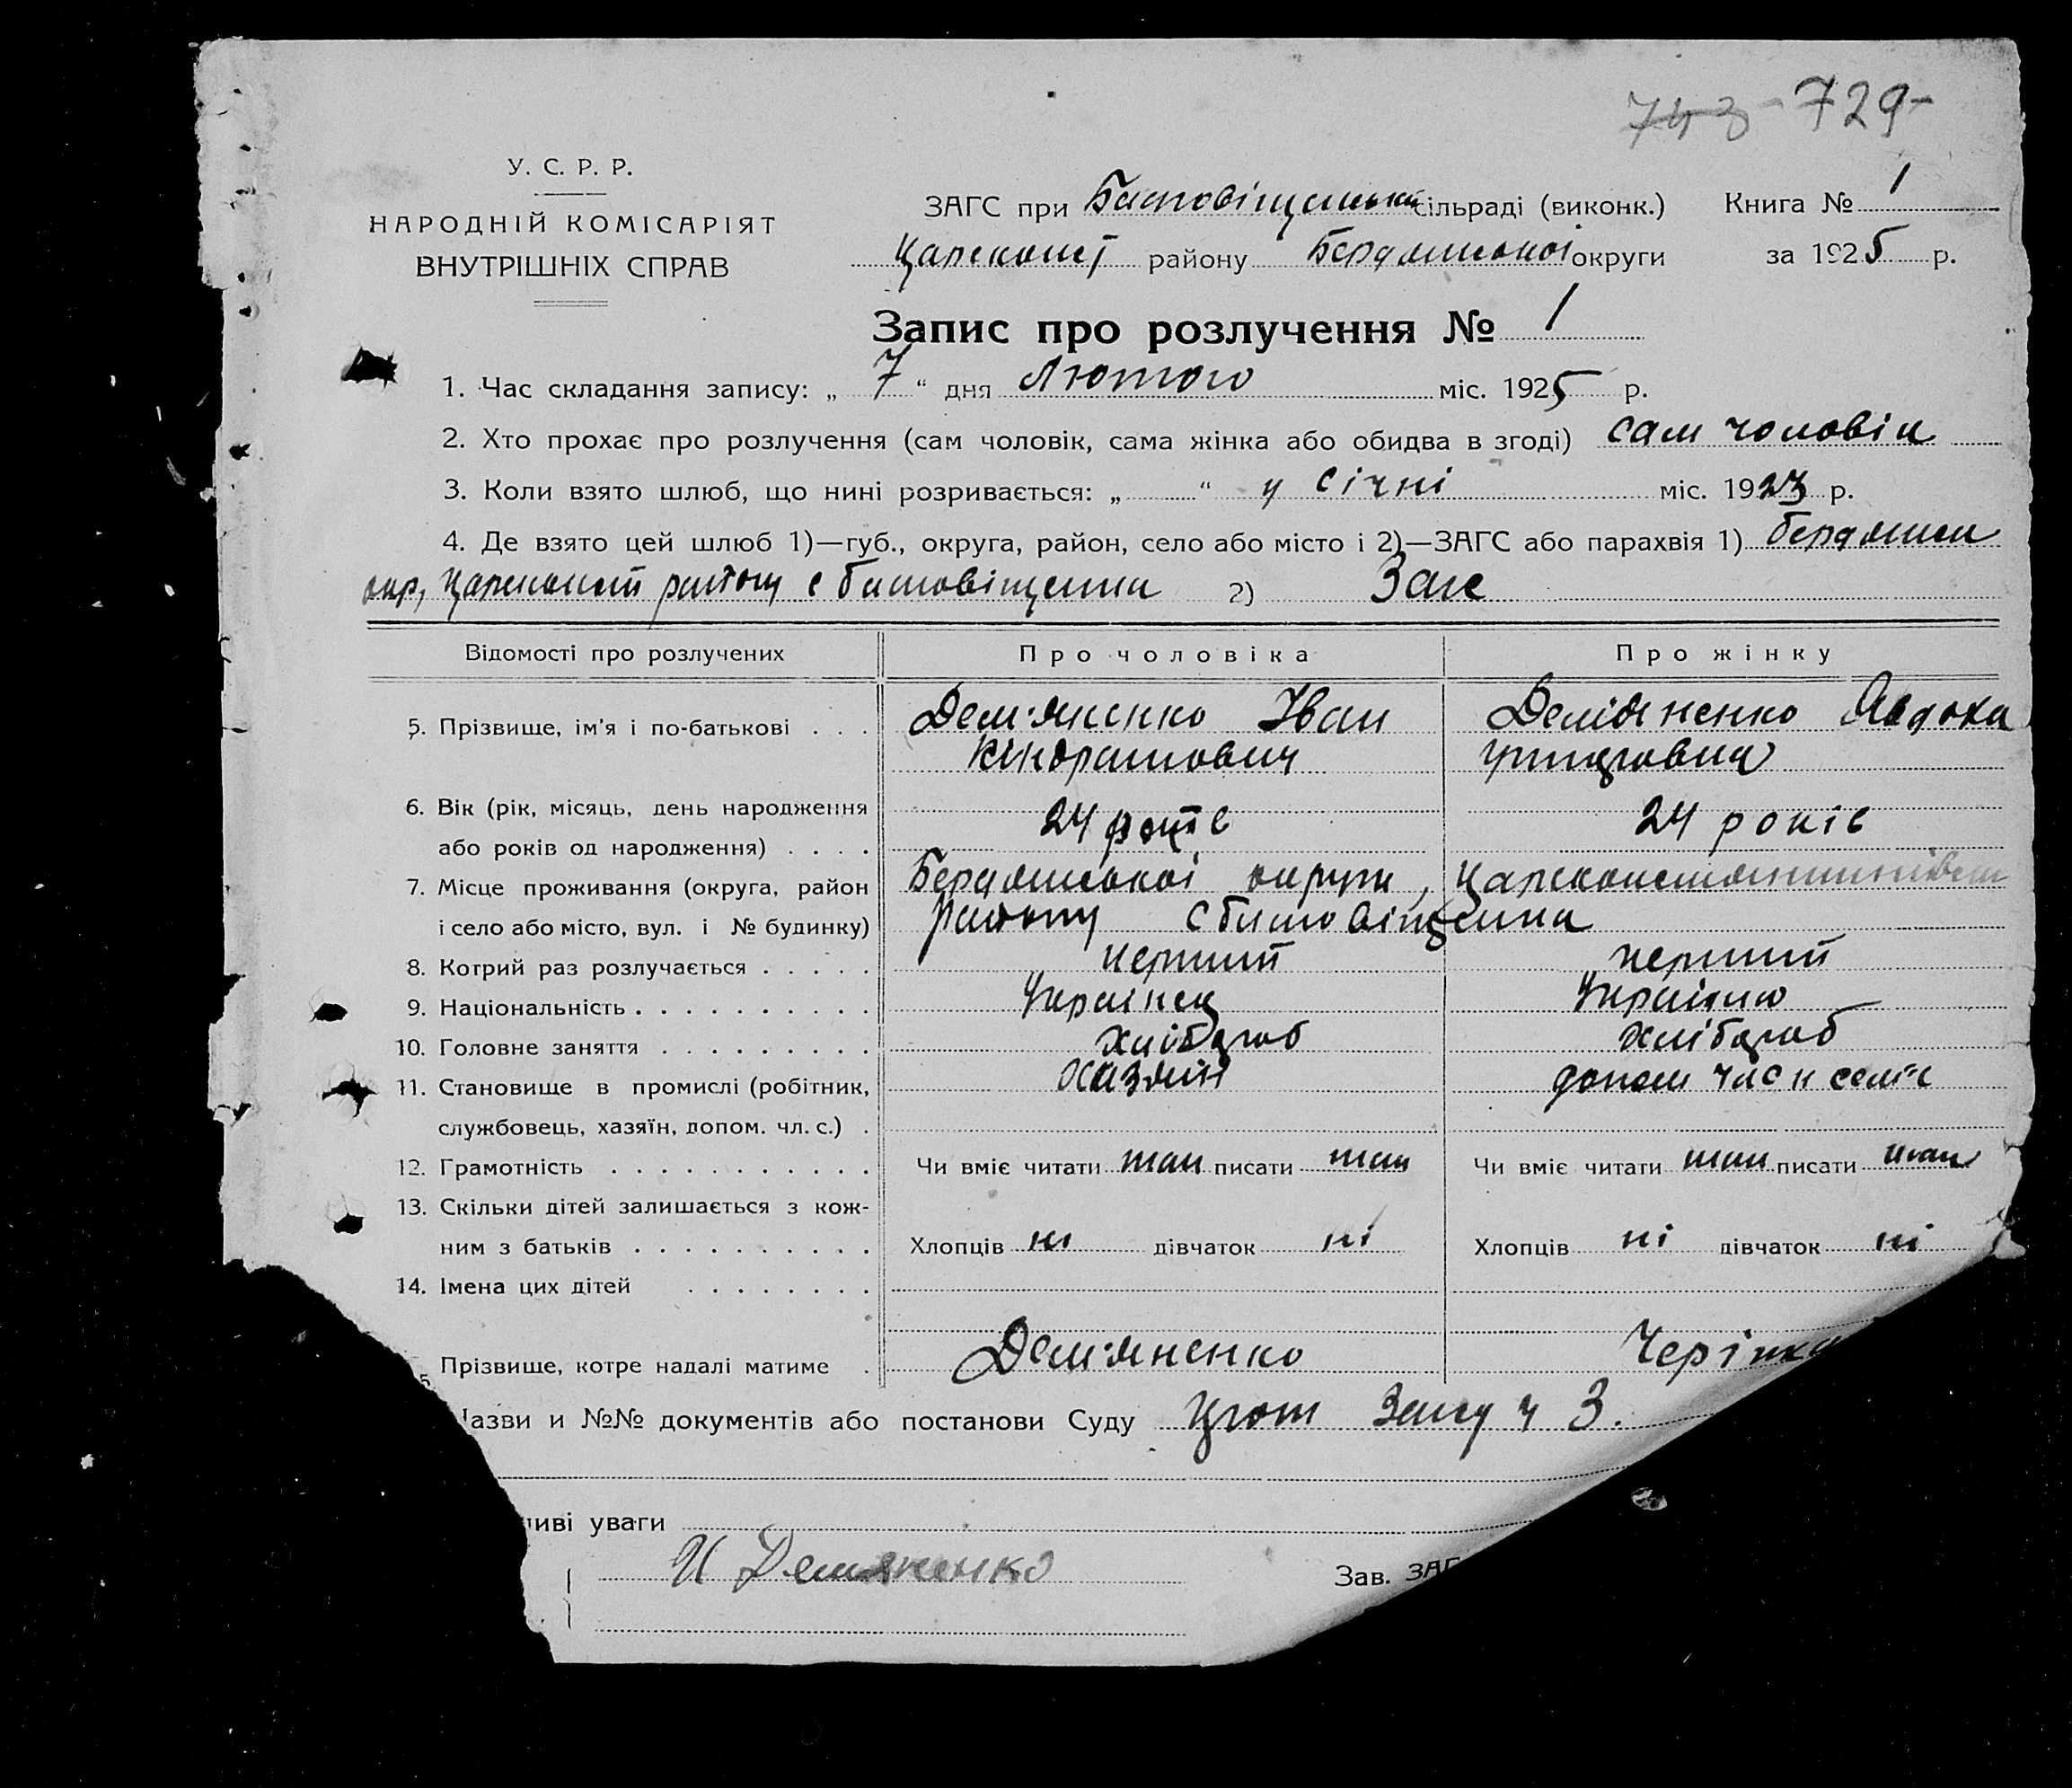 743 - 729-
У. С. Р. Р.
НАРОДНІЙ КОМІСАРІЯТ
ВНУТРІШНІХ СПРАВ
ЗАГС при сільраді (виконк.) Книга № 1
Цареконст району Бердянської округи за 1925 р.
Запис про розлучення № 1
1. Час складання запису: „ 7 “ дня Лютого міс. 1925 р.
2. Хто прохає про розлучення (сам чоловік, сама жінка або обидва в згоді) сам чоловік
3. Коли взято шлюб, що нині розривається: „ “ у січні міс. 1923 р.
4. Де взято цей шлюб 1)—губ., округа, район, село або місто і 2)—ЗАГС або парахвія 1) бердянськ
окр, Цареконст району с 2) Загс
Відомості про розлучених Про чоловіка Про жінку
5. Прізвище, ім'я і по-батькові . . . Дем'яненко Іван Авдоха
Кіндратович
6. Вік (рік, місяць, день народження
або років од народження) . . . . 24 років 24 років
7. Місце проживання (округа, район Бердянської округи, Цареконстянтинівськ
і село або місто, вул. і № будинку) району с
8. Котрий раз розлучається . . . . . перший перший
9. Національність . . . . . . . . . . Українец Українка
10. Головне заняття . . . . . . . . . хлібороб хлібороб
11. Становище в промислі (робітник, хазяїн допом член сем'ї
службовець, хазяїн, допом. чл. с.) .
12. Грамотність . . . . . . . . . . . Чи вміє читати так писати так Чи вміє читати так писати так
13. Скільки дітей залишається з кож-
ним з батьків . . . . . . . . . . Хлопців ні дівчаток ні Хлопців ні дівчаток ні
14. Імена цих дітей . . . . . . . .
5 Прізвище, котре надалі матиме . Дем'яненко
азви и №№ документів або постанови Суду Загсу ч 3.
иві уваги
И Демяненко Зав. ЗАГ